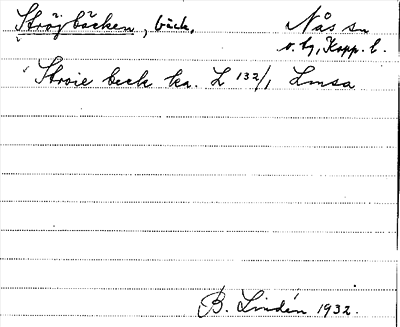 Ströjbäcken, bäck. Nås sn
v. bg, Kopp. l.
Stroie beck ka. L 132/1 Lmsa
B. Lindén 1932.